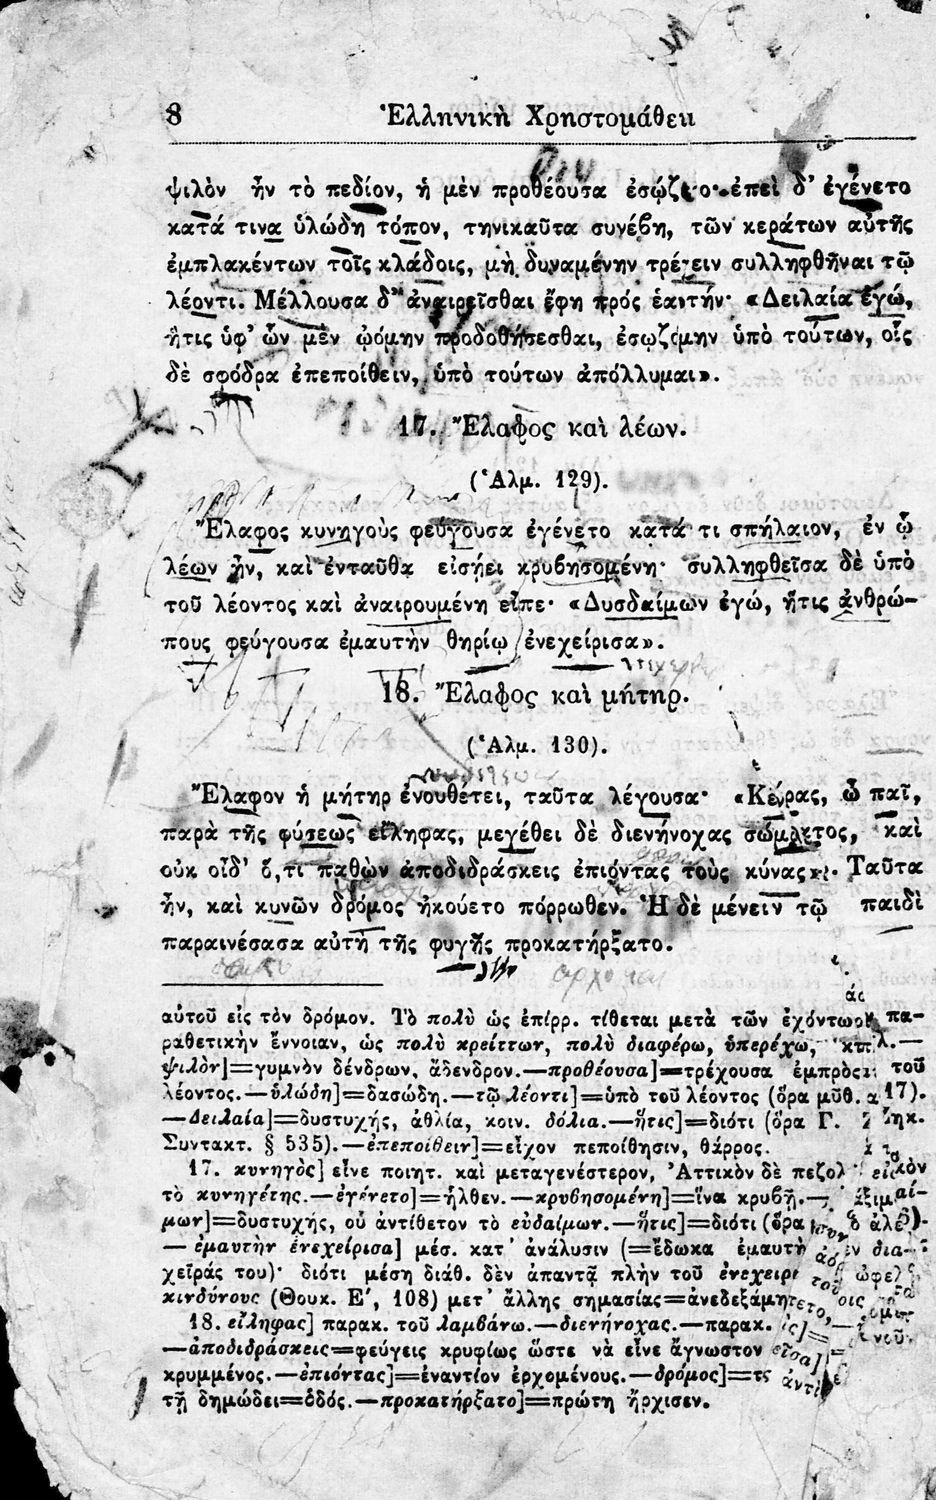 8 Ἑλληνικὴ Χρηστομάθεια
ψιλὸν ἦν τὸ πεδίον, ἡ μὲν προθέουσα ἐσῴζετο· ἐπεὶ δ' ἐγένετο
κατά τινα ὑλώδη τόπον, τηνικαῦτα συνέβη, τῶν κεράτων αὐτῆς
ἐμπλακέντων τοῖς κλάδοις, μὴ δυναμένην τρέχειν συλληφθῆναι τῷ
λέοντι. Μέλλουσα δ' ἀναιρεῖσθαι ἔφη πρός ἑαυτήν· «Δειλαία ἐγώ,
ἥτις ὑφ' ὧν μὲν ᾠόμην προδοθήσεσθαι, ἐσῳζόμην ὑπὸ τούτων, οἷς
δὲ σφόδρα ἐπεποίθειν, ὑπὸ τούτων ἀπόλλυμαι».
17. Ἔλαφος καὶ λέων.
(Ἁλμ. 129).
Ἔλαφος κυνηγοὺς φεύγουσα ἐγένετο κατά τι σπήλαιον, ἐν ᾧ
λέων ἦν, καὶ ἐνταῦθα εἰσῄει κρυβησομένη· συλληφθεῖσα δὲ ὑπὸ
τοῦ λέοντος καὶ ἀναιρουμένη εἶπε· «Δυσδαίμων ἐγώ, ἥτις ἀνθρώ-
πους φεύγουσα ἐμαυτὴν θηρίῳ ἐνεχείρισα».
18. Ἔλαφος καὶ μήτηρ.
(Ἁλμ. 130).
Ἔλαφον ἡ μήτηρ ἐνουθέτει, ταῦτα λέγουσα· «Κέρας, ὦ παῖ,
παρὰ τῆς φύσεως εἴληφας, μεγέθει δὲ διενήνοχας σώματος, καὶ
οὐκ οἶδ' ὅ,τι παθὼν ἀποδιδράσκεις ἐπιόντας τοὺς κύνας». Ταῦτα
ἦν, καὶ κυνῶν δρόμος ἠκούετο πόρρωθεν. Ἡ δὲ μένειν τῷ παιδὶ
παραινέσασα αὐτὴ τῆς φυγῆς προκατήρξατο.
αὐτοῦ εἰς τὸν δρόμον. Τὸ πολὺ ὡς ἐπίρρ. τίθεται μετὰ τῶν ἐχόντων πα-
ραθετικὴν ἔννοιαν, ὡς πολὺ κρείττων, πολὺ διαφέρω, ὑπερέχω, κτλ.—
ψιλὸν]=γυμνὸν δένδρων, ἄδενδρον.—προθέουσα]=τρέχουσα ἐμπρὸς τοῦ
λέοντος.—ὑλώδη]=δασώδη.—τῷ λέοντι]=ὑπὸ τοῦ λέοντος (ὅρα μῦθ. 17).
—Δειλαία]=δυστυχής, ἀθλία, κοιν. δόλια.—ἥτις]=διότι (ὅρα Γ. Ζηκ.
Συντακτ. § 535).—ἐπεποίθειν]=εἶχον πεποίθησιν, θάρρος.
17. κυνηγὸς] εἶνε ποιητ. καὶ μεταγενέστερον, Ἀττικὸν δὲ πεζολ
τὸ κυνηγέτης.—ἐγένετο]=ἦλθεν.—κρυβησομένη]=ἵνα κρυβῇ.—
μων]=δυστυχής, οὗ ἀντίθετον τὸ εὐδαίμων.—ἥτις]=διότι (ὅρα
—ἐμαυτὴν ἐνεχείρισα] μέσ. κατ' ἀνάλυσιν (=ἔδωκα ἐμαυτὴν
χεῖράς του)· διότι μέση διάθ. δὲν ἀπαντᾷ πλὴν τοῦ
κινδύνους (Θουκ. Ε′, 108) μετ' ἄλλης σημασίας=
18. εἴληφας] παρακ. τοῦ λαμβάνω.—διενήνοχας.—παρακ.
—ἀποδιδράσκεις=φεύγεις κρυφίως ὥστε νὰ εἶνε ἄγνωστον
κρυμμένος.—ἐπιόντας]=ἐναντίον ἐρχομένους.—δρόμος]=
τῇ δημώδει=ὁδός.—προκατήρξατο]=πρώτη ἤρχισεν.